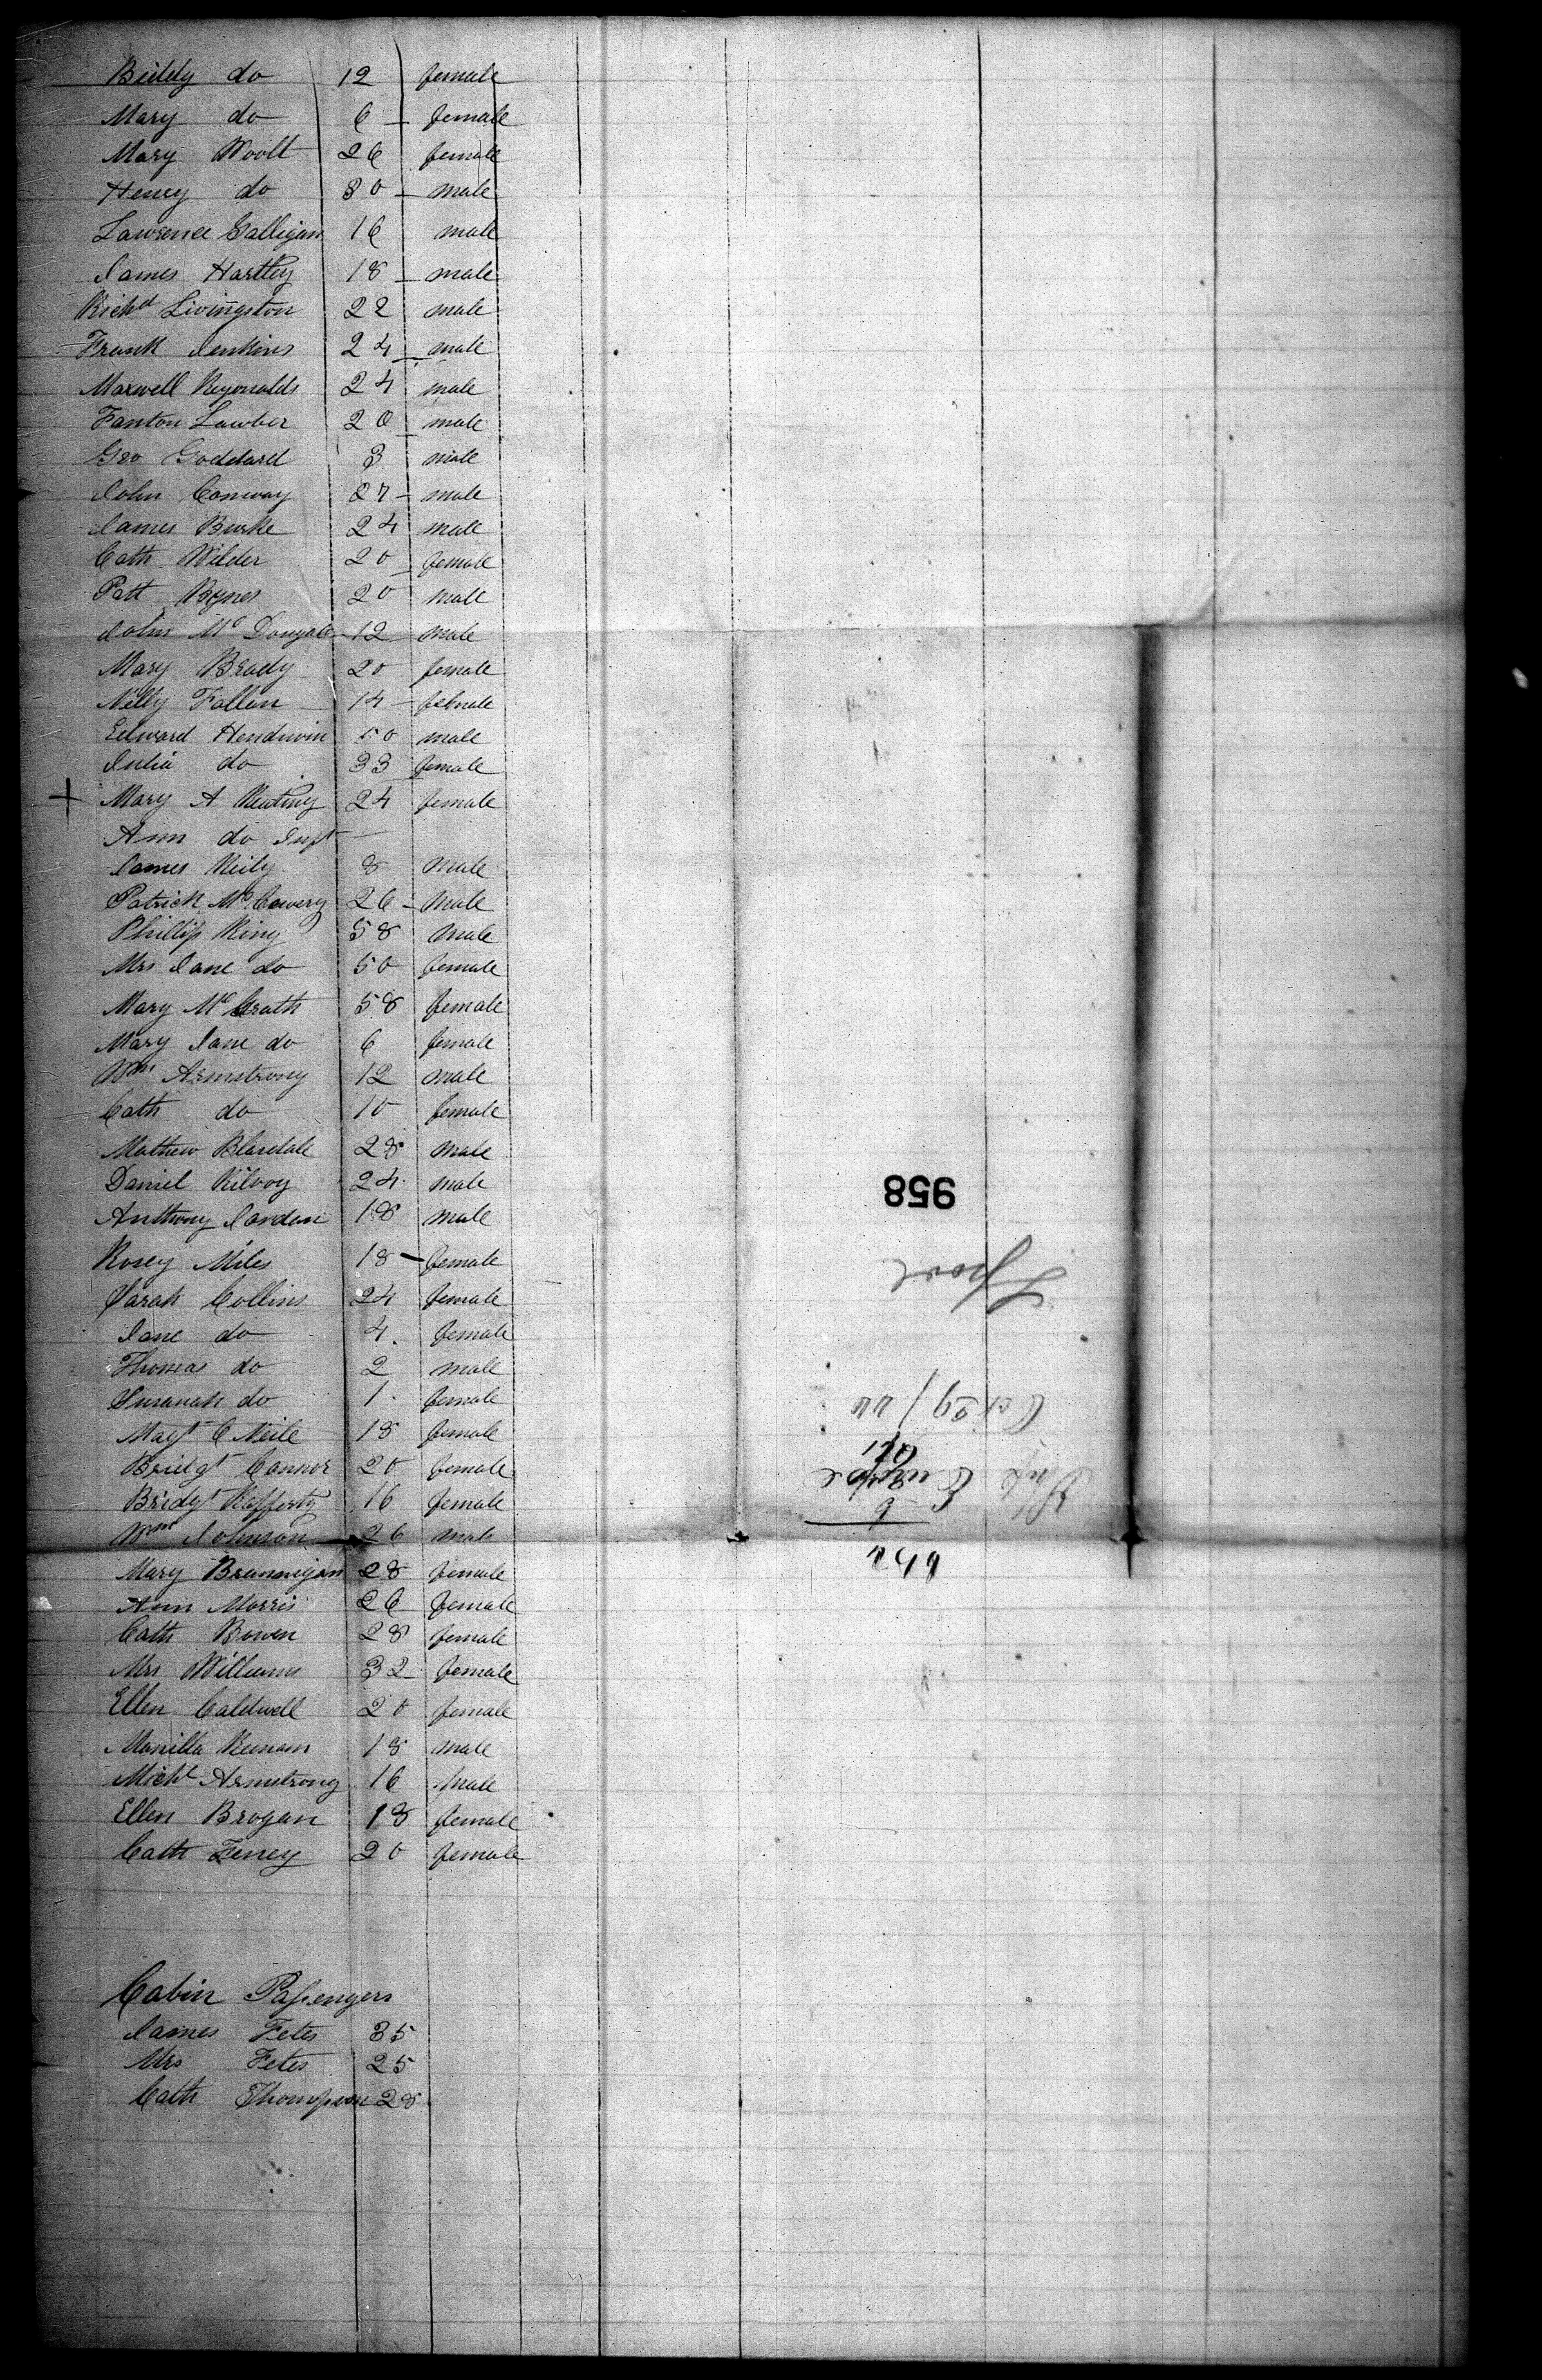 Biddy do 12 female
Mary do 6 female
Mary Woolt 26 female
Henry do 30 male
Lawrence Galligan 16 male
James Hartley 18 male
Richd Livingston 22 male
Frank Jenkins 24 male
Maxwell Reyonalds 24 male
Fanton Lawber 20 male
Geo Goddard 3 male
John Conway 27 male
James Burke 24 male
Cath Wilder 20 female
Patt Bynes 20 male
John Mc Dougale 12 male
Mary Brady 20 female
Nelly Fallan 14 female
Edward Hendwin 50 male
Julia do 33 female
+ Mary A Keating 24 female
Ann do Inft
James Keily 8 male
Patrick Mc Cawery 26 male
Phillip King 58 male
Mrs Jane do 50 female
Mary Mc Grath 58 female
Mary Jane do 6 female
Wm Armstrong 12 male
Cath do 10 female
Mathew Blasdale 28 male
Daniel Kilroy 24 male
Anthony Jorden 18 male
Rosey Miles 18 female
Sarah Collins 24 female
Jane do 4 female
Thomas do 2 male
Susanah do 1 female
Magt O Neile 18 female
Bridgt Connor 20 female
Bridgt Rafferty 16 female
Wm Johnson 26 male
Mary Brannigan 28 female
Ann Morris 26 female
Cath Bowen 28 female
Mrs Williams 32 female
Ellen Caldwell 20 female
Manilla Keenan 18 male
Michl Armstrong 16 male
Ellen Brogan 18 female
Cath Feney 20 female
Cabin Passengers
James Fetes 35
Mrs Fetes 25
Cath Thompson 28
958
Lpool
Ship Europe